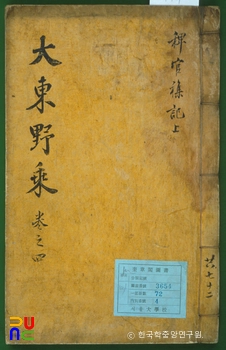 稗官雜記上
大東野乘 卷之四
共七十二
奎章閣圖書
3653
72
4
한국학중앙연구원